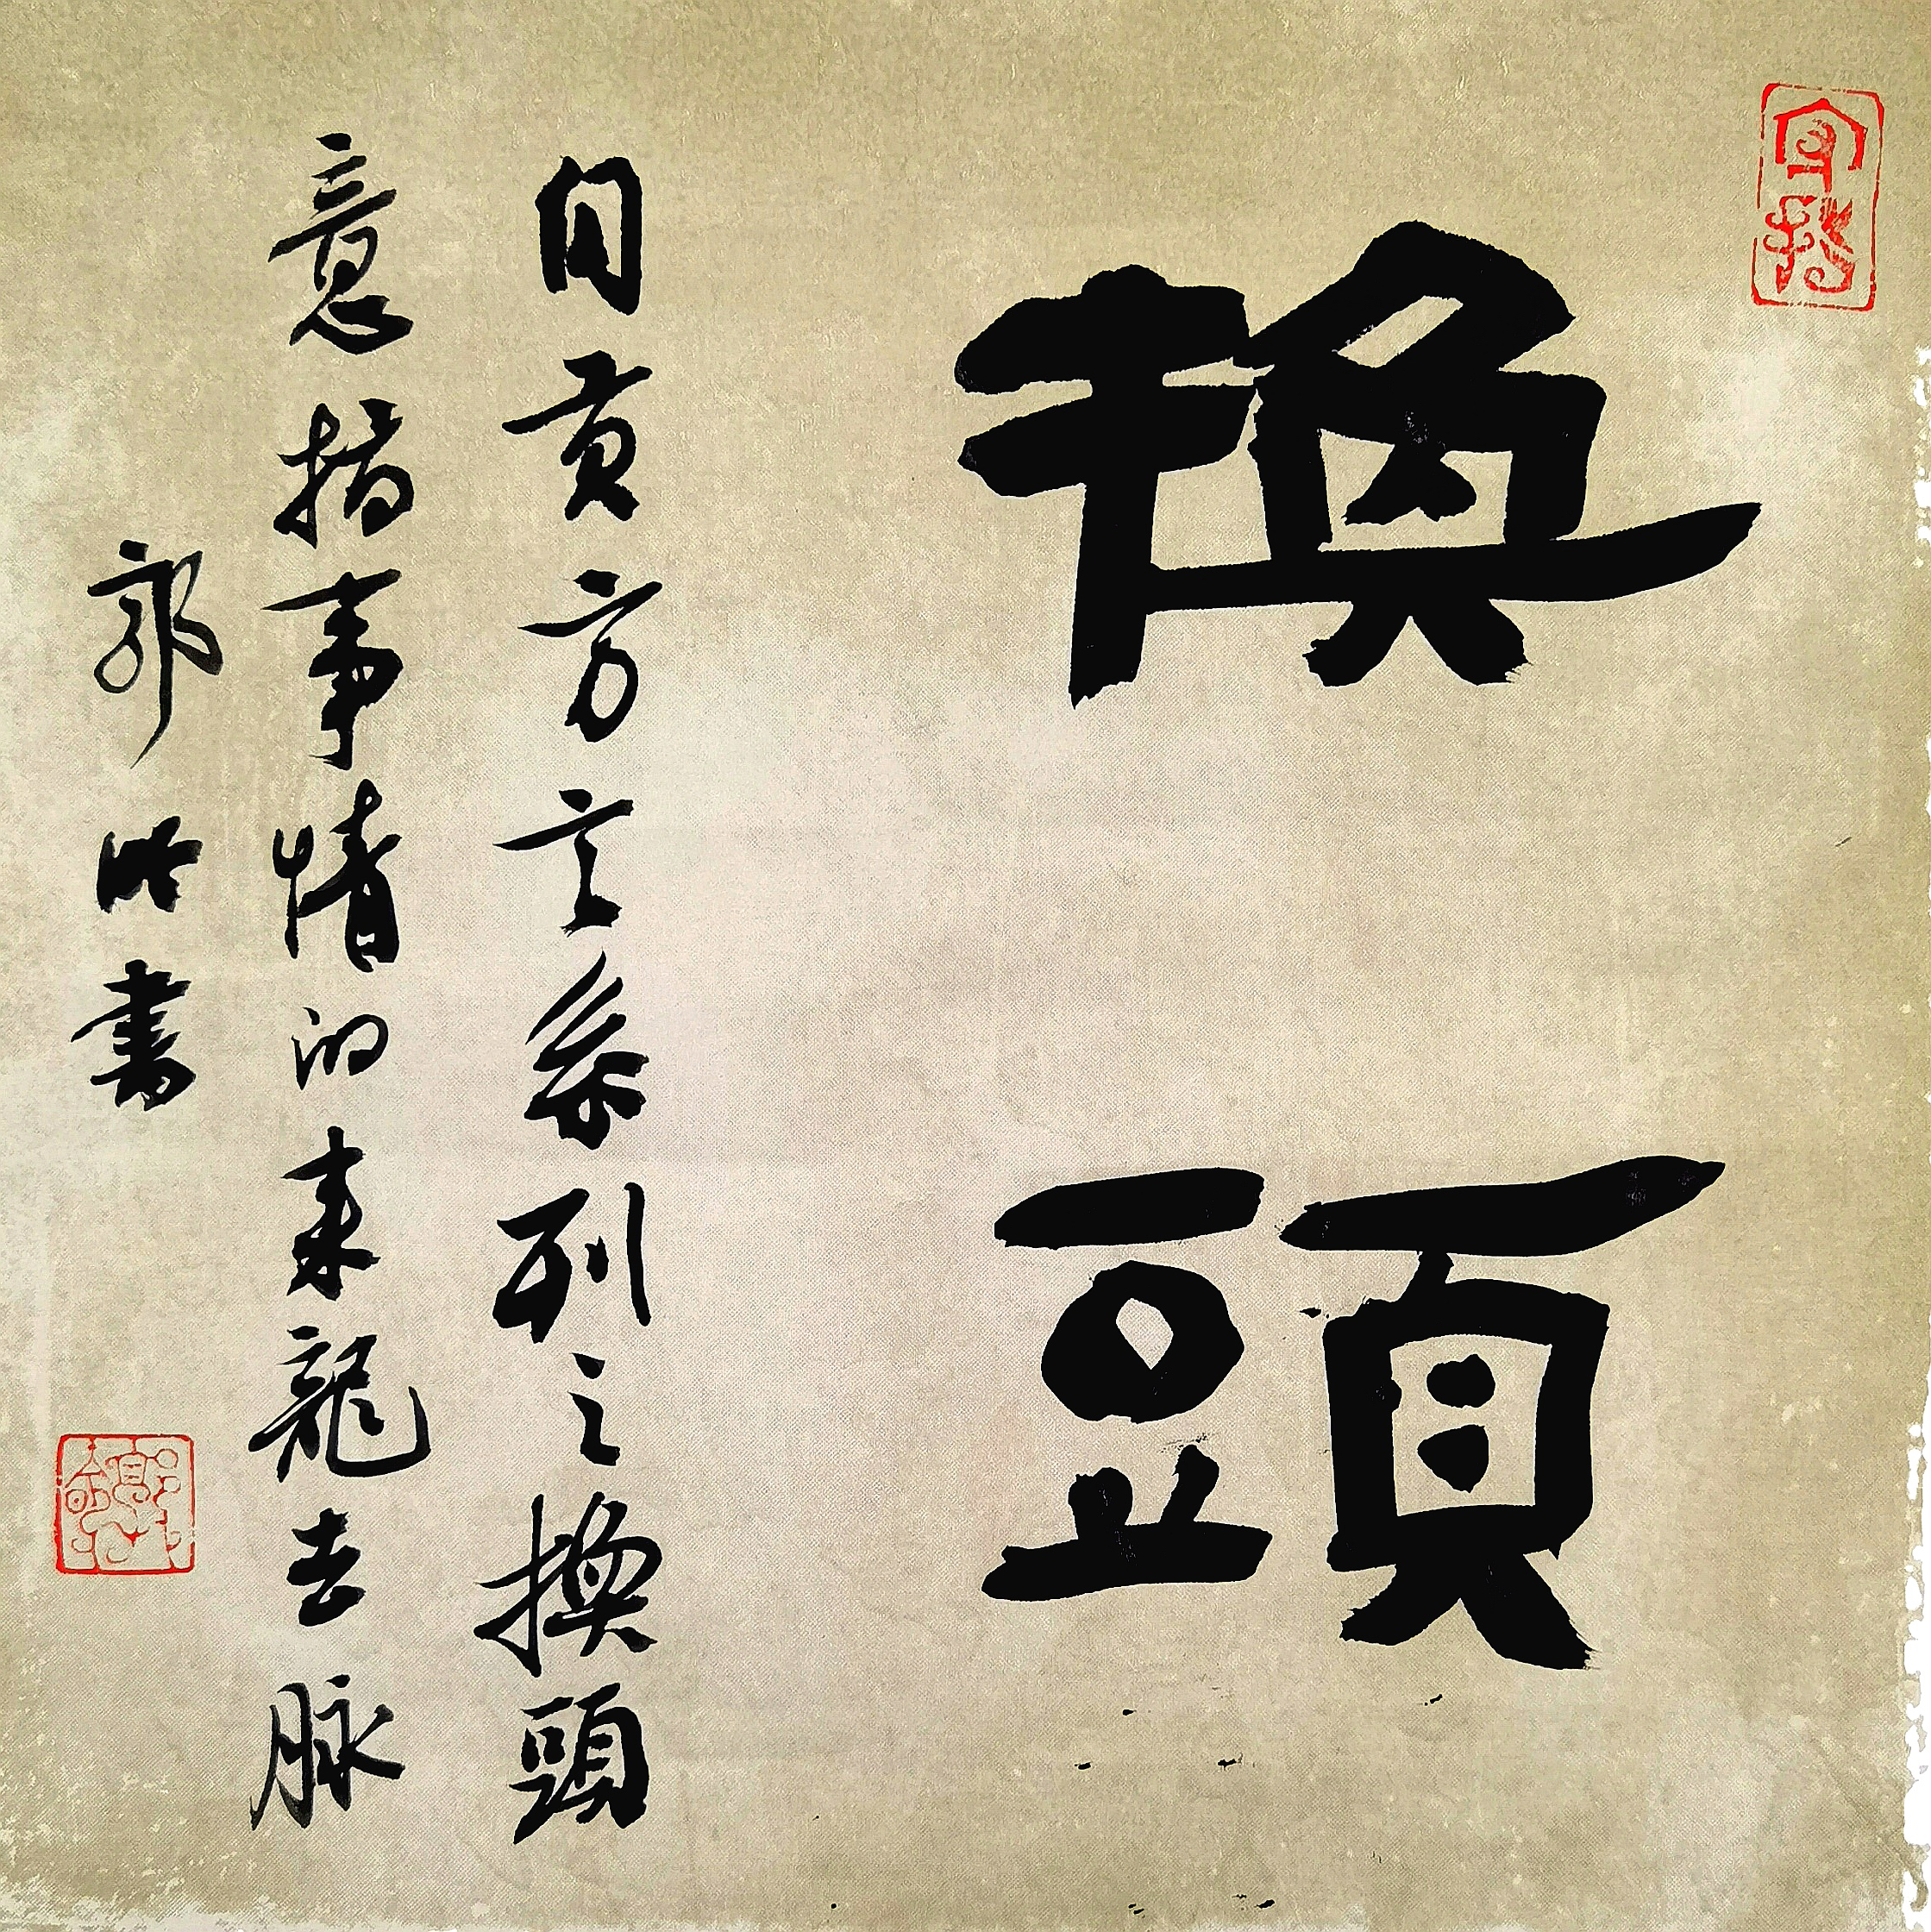 換頭
自貢方言系列之換頭
意指事情的来龍去脉
郭 書